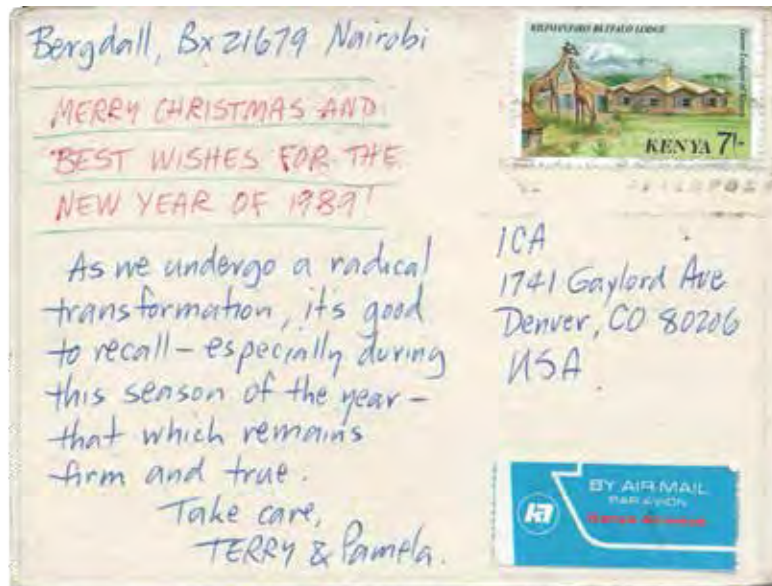 Bergdall, Bx 21679 Nairobi
MERRY CHRISTMAS AND
BEST WISHES FOR THE
NEW YEAR OF 1989!
As we undergo a radical
transformation, it's good
to recall – especially during
this season of the year –
that which remains
firm and true.
Take care,
TERRY & Pamela.
KILIMANJARO BUFFALO LODGE
KENYA 7/-
ICA
1741 Gaylord Ave
Denver, CO 80206
USA
BY AIR MAIL
PAR AVION
Kenya Airways